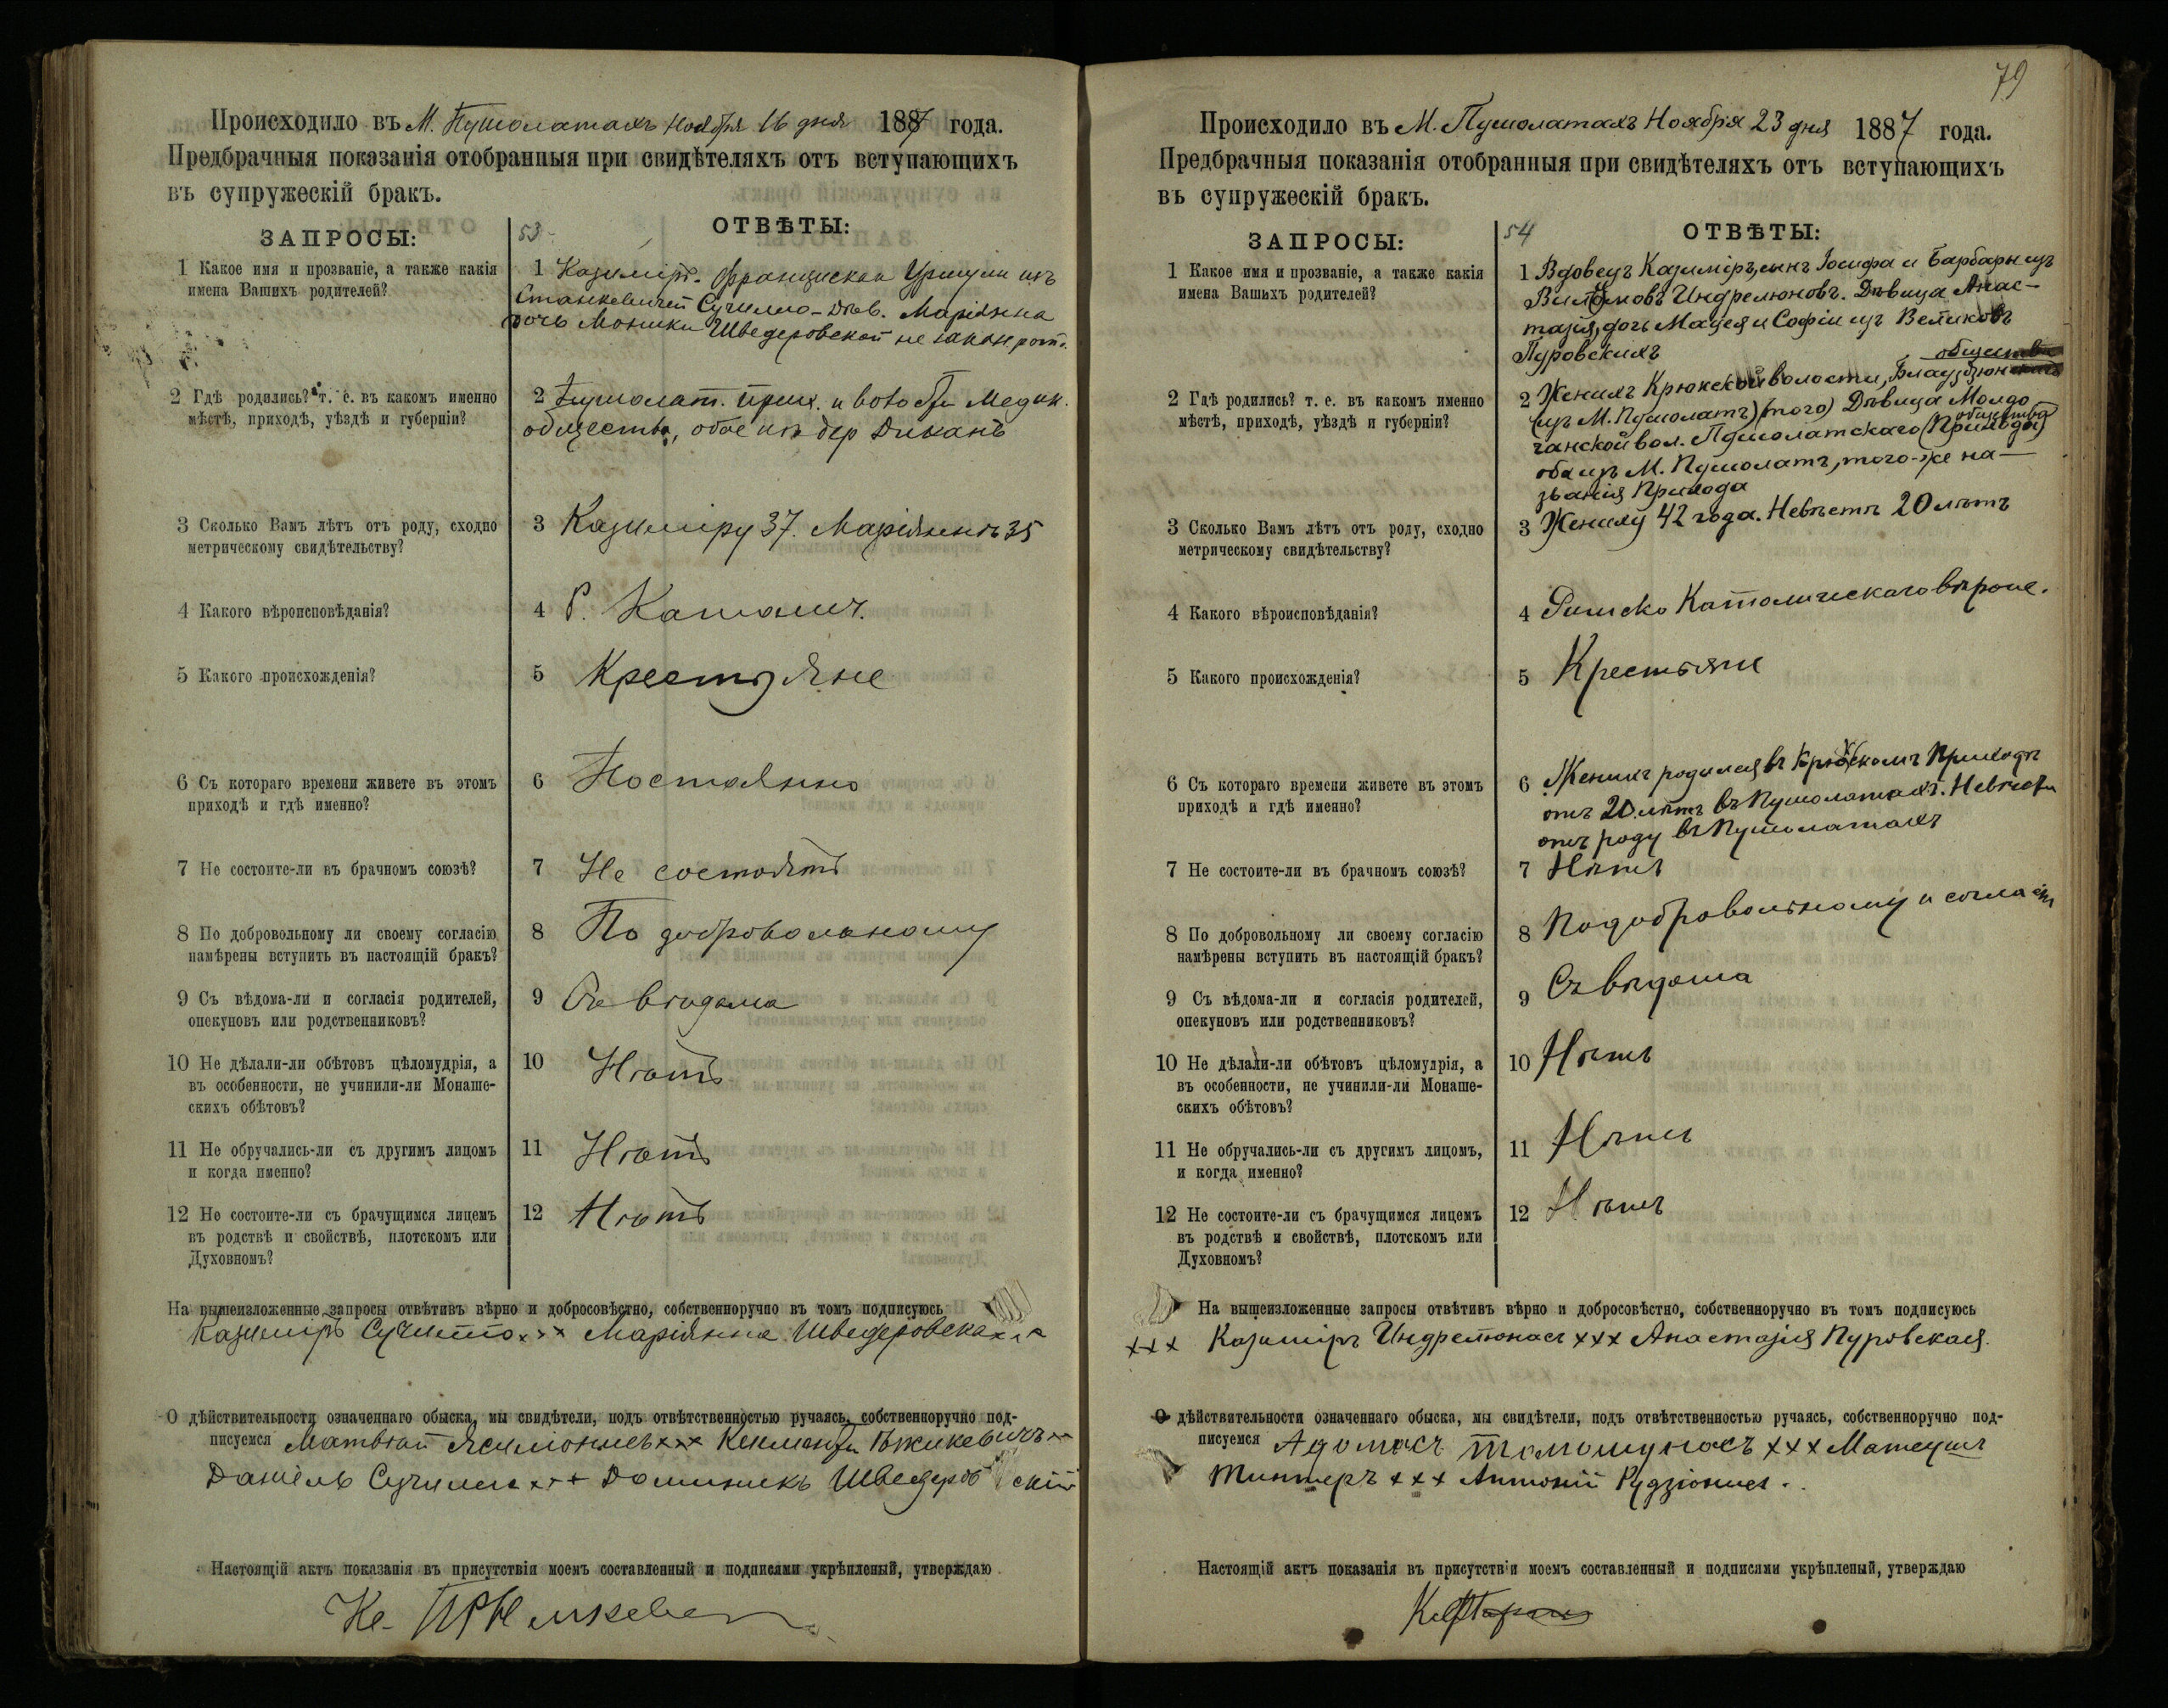 Происходило въ М. Пушолатахъ Ноября 16 дня 1887 года.
Предбрачныя показанія отобранныя при свидѣтеляхъ отъ вступающихъ
въ супружескій бракъ.
ЗАПРОСЫ:
53
ОТВѢТЫ:
1 Какое имя и прозваніе, а также какія
имена Вашихъ родителей?
1 Казиміръ. Франциска
Станкевичей Сучилло - Дѣв. Маріянна
дочь Моники Шведеровской не закон рожд.
2 Гдѣ родились? т. е. въ какомъ именно
мѣстѣ, приходѣ, уѣздѣ и губерніи?
2 Пушолат. прих. и
общества, обое изъ дер Диканъ
3 Сколько Вамъ лѣтъ отъ роду, сходно
метрическому свидѣтельству?
3 Казиміру 37. Маріяннѣ 35
4 Какого вѣроисповѣданія?
4 Р. Католич.
5 Какого происхожденія?
5 Крестьяне
6 Съ котораго времени живете въ этомъ
приходѣ и гдѣ именно?
6 Постоянно
7 Не состоите-ли въ брачномъ союзѣ?
7 Не состоятъ
8 По добровольному ли своему согласію
намѣрены вступить въ настоящій бракъ?
8 По добровольному
9 Съ вѣдома-ли и согласія родителей,
опекуновъ или родственниковъ?
9 Съ вѣдома
10 Не дѣлали-ли обѣтовъ цѣломудрія, а
въ особенности, не учинили-ли Монаше-
скихъ обѣтовъ?
10 Нѣтъ
11 Не обручались-ли съ другимъ лицомъ
и когда именно?
11 Нѣтъ
12 Не состоите-ли съ брачущимся лицемъ
въ родствѣ и свойствѣ, плотскомъ или
Духовномъ?
12 Нѣтъ
На вышеизложенные запросы отвѣтивъ вѣрно и добросовѣстно, собственноручно въ томъ подписуюсь
Казиміръ Сучилло xxx Маріянна Шведеровска xxx
О дѣйствительности означеннаго обыска, мы свидѣтели, подъ отвѣтственностью ручаясь, собственноручно под-
писуемся Матвѣй xxx
Даніель Сучилло xxx Доминикъ Шведеровскій
Настоящій актъ показанія въ присутствіи моемъ составленный и подписями укрѣпленый, утверждаю
79
Происходило въ М. Пушолатахъ Ноября 23 дня 1887 года.
Предбрачныя показанія отобранныя при свидѣтеляхъ отъ вступающихъ
въ супружескій бракъ.
ЗАПРОСЫ:
54
ОТВѢТЫ:
1 Какое имя и прозваніе, а также какія
имена Вашихъ родителей?
1 Вдовецъ Казиміръ, сынъ Іосифа и Барбары изъ
Индрелюновъ. Дѣвица Анас-
тазія, дочь Мацея и Софіи изъ Великовъ
Пуровскихъ
2 Гдѣ родились? т. е. въ какомъ именно
мѣстѣ, приходѣ, уѣздѣ и губерніи?
общества
2 Женихъ Крюкской волости,
(изъ М. Пушолатъ) (того) Дѣвица
общества
вол. Пушолатскаго (Прихода)
оба изъ М. Пушолатъ, того-же на-
званія Прихода
3 Сколько Вамъ лѣтъ отъ роду, сходно
метрическому свидѣтельству?
3 Жениху 42 года. Невѣстѣ 20 лѣтъ
4 Какого вѣроисповѣданія?
4 Римско Католическаго вѣроис.
5 Какого происхожденія?
5 Крестьяне
6 Съ котораго времени живете въ этомъ
приходѣ и гдѣ именно?
6 Женихъ родился въ Крюкскомъ Приходѣ
отъ 20 лѣтъ въ Пушолатахъ. Невѣста
отъ роду въ Пушолатахъ
7 Не состоите-ли въ брачномъ союзѣ?
7 Нѣтъ
8 По добровольному ли своему согласію
намѣрены вступить въ настоящій бракъ?
8 По добровольному и соглас
9 Съ вѣдома-ли и согласія родителей,
опекуновъ или родственниковъ?
9 Съ вѣдома
10 Не дѣлали-ли обѣтовъ цѣломудрія, а
въ особенности, не учинили-ли Монаше-
скихъ обѣтовъ?
10 Нѣтъ
11 Не обручались-ли съ другимъ лицомъ,
и когда именно?
11 Нѣтъ
12 Не состоите-ли съ брачущимся лицемъ
въ родствѣ и свойствѣ, плотскомъ или
Духовномъ?
12 Нѣтъ
На вышеизложенные запросы отвѣтивъ вѣрно и добросовѣстно, собственноручно въ томъ подписуюсь
xxx Казиміръ Индрелюнасъ xxx Анастазія Пуровская.
О дѣйствительности означеннаго обыска, мы свидѣтели, подъ отвѣтственностью ручаясь, собственноручно под-
писуемся Адомасъ Томошунасъ xxx Матеушъ
Тинтеръ xxx Антоній Рудзіонисъ.
Настоящій актъ показанія въ присутствіи моемъ составленный и подписями укрѣпленый, утверждаю